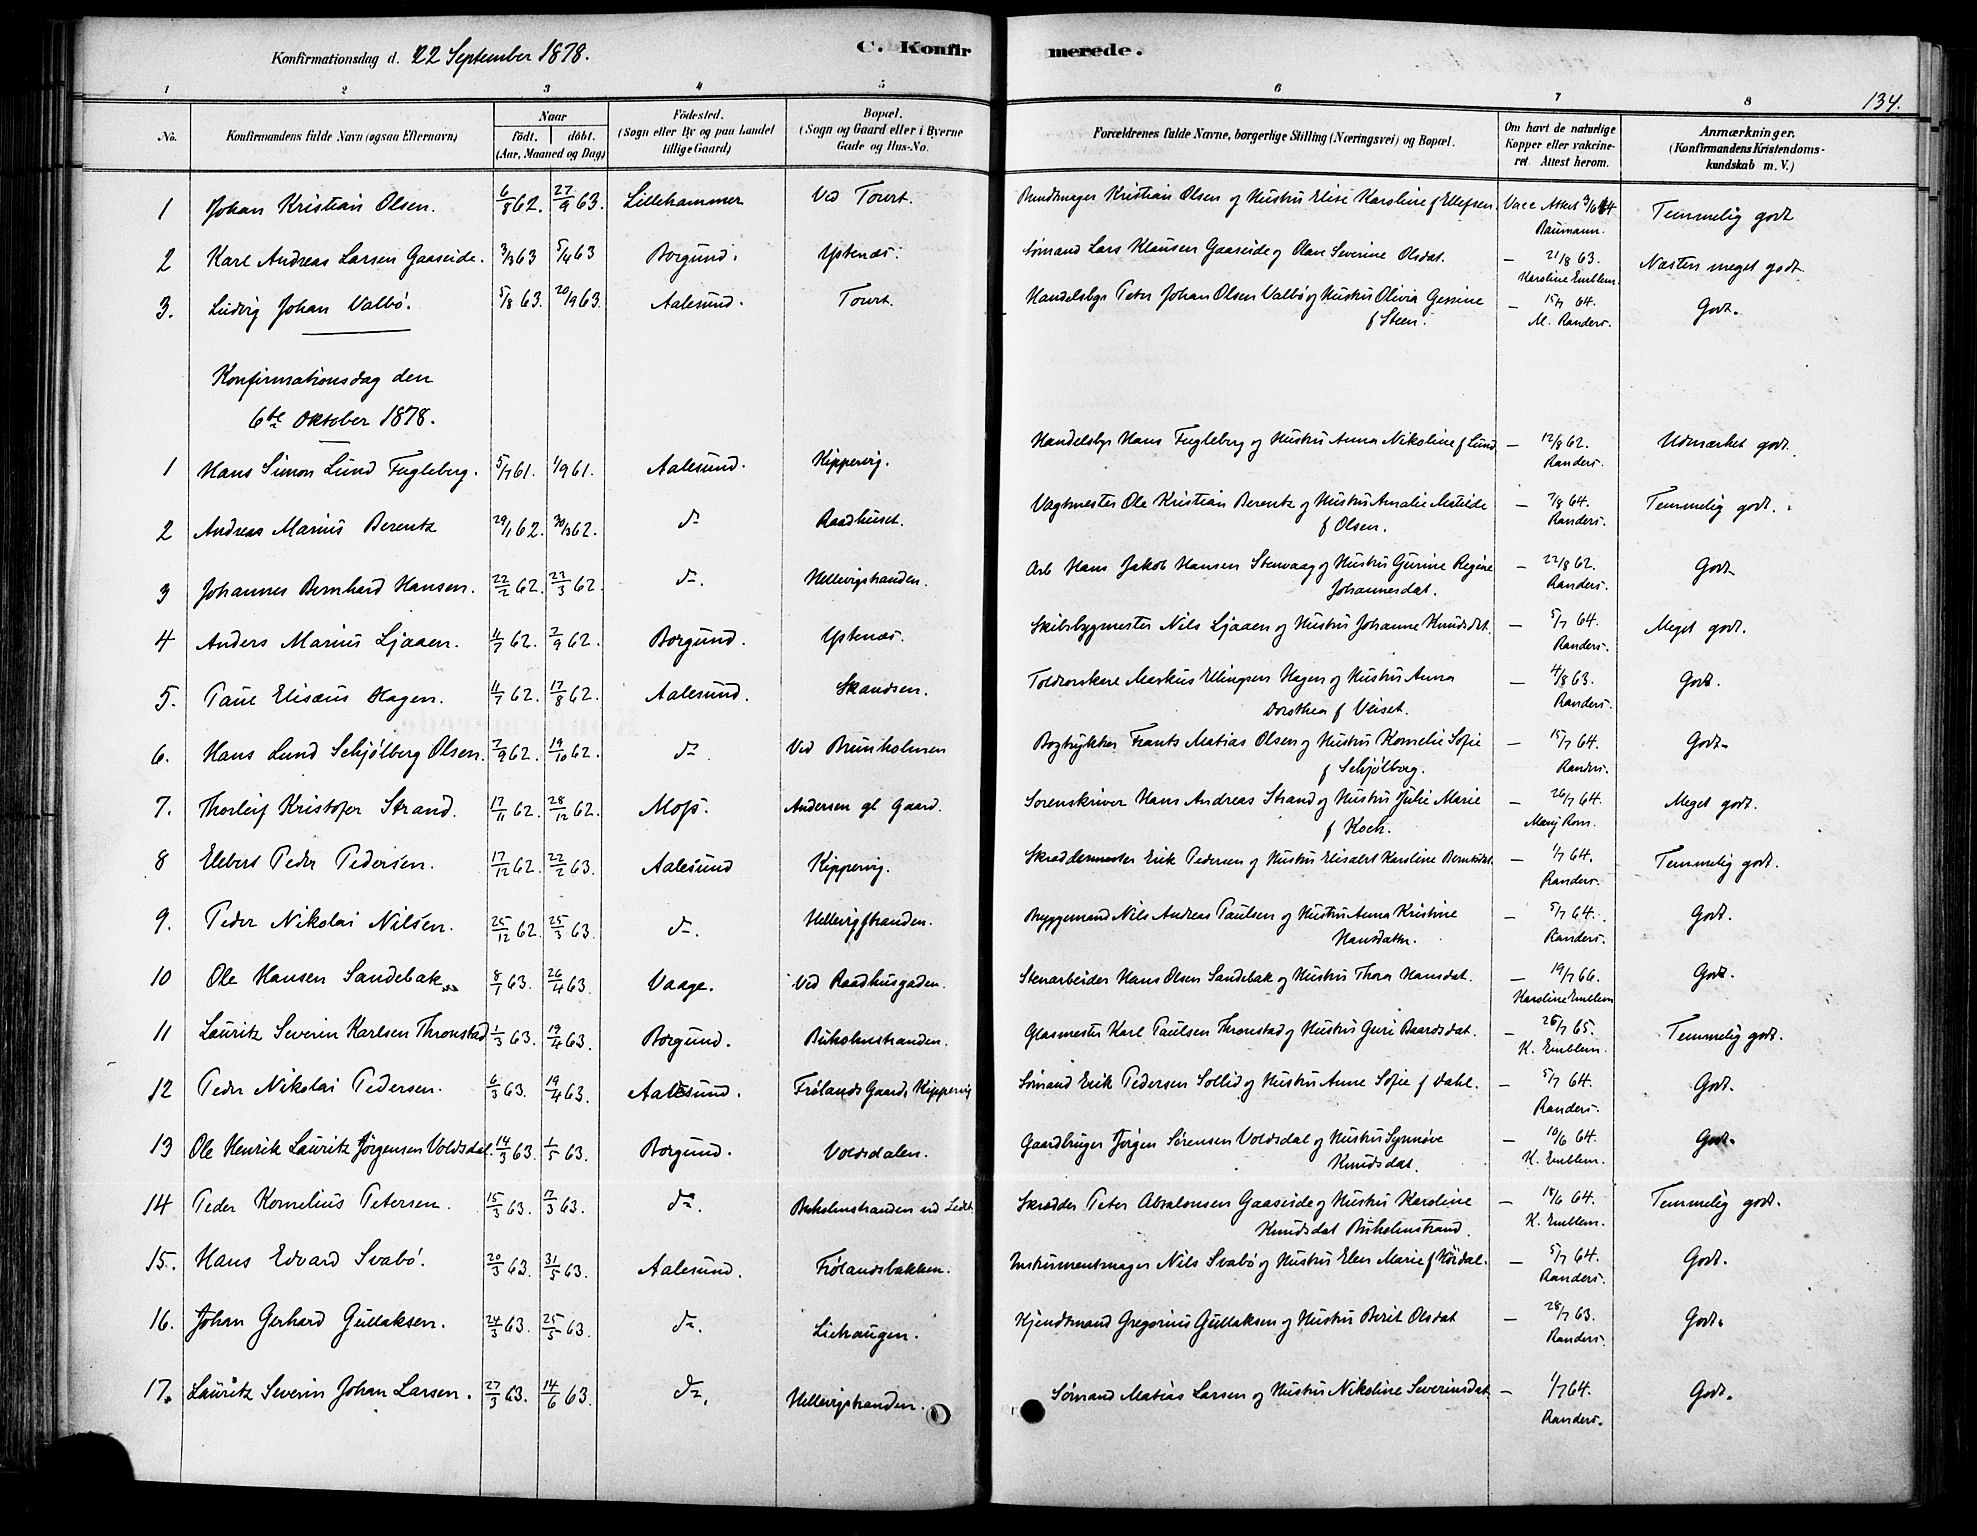 Konfirmationsdag d. 22 September 1878.
C. Konfirmerede.
134.
1 2 3 4 5 6 7 8
No. Konfirmandens fulde Navn (ogsaa Efternavn) Naar født. døbt. (Aar, Maaned og Dag) Fødested. (Sogn eller By og paa Landet tillige Gaard) Bopæl. (Sogn og Gaard eller i Byerne Gade og Hus-No. Forældrenes fulde Navne, borgerlige Stilling (Næringsvei) og Bopæl. Om havt de naturlige Kopper eller vakcineret Attest herom. Anmærkninger. (Konfirmandens Kristendomskundskab m. V.)
1 Johan Kristian Olsen. 6/8 62. 27/9 63. Lillehammer Ved Tourt. Bundtmager Kristian Olsen og Hustru Elise Karoline f Ellefsen. Vacc Attest 3/6 64 Temmelig godt
Baumann.
2 Karl Andreas Larsen Gaaseide. 3/3 63 5/4 63 Borgund. Ystenæs. Sømand Lars Klausen Gaaseide og Olave Severine Olsdat. — 21/8 63. Næsten meget godt.
Karoline Emblem.
3. Ludvig Johan Valbø. 5/8 63. 20/9 63. Aalesund. Tourt. Handelsbgr Peter Johan Olsen Valbø og Hustru Olivia Gessine — 15/7 64. Godt.
f Steen. M. Randers.
Konfirmationsdag den
6te Oktober 1878.
1 Hans Simon Lund Fugleberg. 5/7 61. 1/9 61. Aalesund. Kippervig. Handelsbgr Hans Fugleberg og Hustru Anna Nikoline f Lund — 12/8 62. Udmærket godt.
Randers.
2 Andreas Marius Berentz 29/1 62. 30/3 62. do Raadhuset. Vagtmester Ole Kristian Berentz og Hustru Amalie Matilde — 7/8 64. Temmelig godt.
f Olsen. Randers.
3 Johannes Bernhard Hansen. 22/2 62. 23/3 62. do. Hellevigstranden. Arb Hans Jakob Hansen Stenvaag og Hustru Gurine Regine — 22/8 62. Godt
Johannesdat. Randers.
4 Anders Marius Ljaaen. 11/7 62. 7/9 62. Borgund. Ystenæs. Skibsbygmester Nils Ljaaen og Hustru Johanne Knudsdat. — 5/7 64. Meget godt.
Randers.
5. Paul Elisæus Hagen. 11/7 62. 17/8 62. Aalesund. Skandsen. Toldrorskarl Markus Ellingsen Hagen og Hustru Anna — 4/8 63. Godt.
Dorothea f Veiset. Randers.
6. Hans Lund Schjølberg Olsen. 7/9 62. 19/10 62. do Ved Brunholmen Bogtrykker Frants Matias Olsen og Hustru Kornelie Sofie — 15/7 64. Godt.
f Schjølberg. Randers.
7. Thorleif Kristofer Strand. 17/11 62. 28/12 62. Moss. Andersen gl Gaard. Sorenskriver Hans Andreas Strand og Hustru Julie Marie — 26/7 64. Meget godt.
f Koch. Marij Rom.
8 Elebert Peder Pedersen. 17/12 62. 22/2 63. Aalesund Kippervig. Skræddermester Erik Pedersen og Hustru Elisabet Karoline Berntsdat. — 1/7 64. Temmelig godt.
Randers.
9. Peder Nikolai Nilsen. 25/12 62. 25/3 63. do. Hellevigstranden. Bryggemand Nils Andreas Paulsen og Hustru Anna Kristine — 5/7 64. Godt.
Hansdatter. Randers.
10 Ole Hansen Sandebak 8/1 63. 26/4 63. Vaage. Ved Raadhusgaden. Stenarbeider Hans Olsen Sandebak og Hustru Thora Hansdat. — 19/7 66. Godt.
Karoline Emblem
11 Lauritz Severin Karlsen Thronstad 1/3 63. 19/4 63. Borgund. Buholmstranden. Glasmester Karl Paulsen Thronstad og Hustru Guri Baardsdat. — 26/7 65. Temmelig godt.
K. Emblem.
12 Peder Nikolai Pedersen. 6/3 63. 19/4 63. Aalesund. Frølands Gaard, Kippervig Sømand Erik Pedersen Sollid og Hustru Anne Sofie f Dahl. — 5/7 64. Godt.
Randers.
13 Ole Henrik Lauritz Jørgensen Voldsdal. 14/3 63. 1/5 63. Borgund. Voldsdalen. Gaardbruger Jørgen Sørensen Voldsdal og Hustru Synnøve — 10/6 64. Godt.
Knudsdat. K. Emblem.
14 Peder Kornelius Petersen. 15/3 63. 17/3 63. do. Buholmstranden ved Ledet Skrædder Peter Absalonsen Gaaseide og Hustru Karoline — 18/6 64. Temmelig godt.
Knudsdat Buholmstrand. K. Emblem.
15. Hans Edvard Svabø. 20/3 63. 31/5 63. Aalesund. Frølandsbakken. Instrumentmager Nils Svabø og Hustru Elen Marie f Kördal. — 5/7 64. Godt.
Randers.
16. Johan Gerhard Gullaksen. 24/3 63. 25/5 63. do. Liehaugen. Kjendtmand Gregorius Gullaksen og Hustru Berit Olsdat — 28/7 63. Godt.
Randers.
17. Lauritz Severin Johan Larsen. 27/3 63. 14/6 63. do. Hellevigstranden. Sømand Matias Larsen og Hustru Nikoline Severinsdat — 1/7 64. Godt.
Randers.